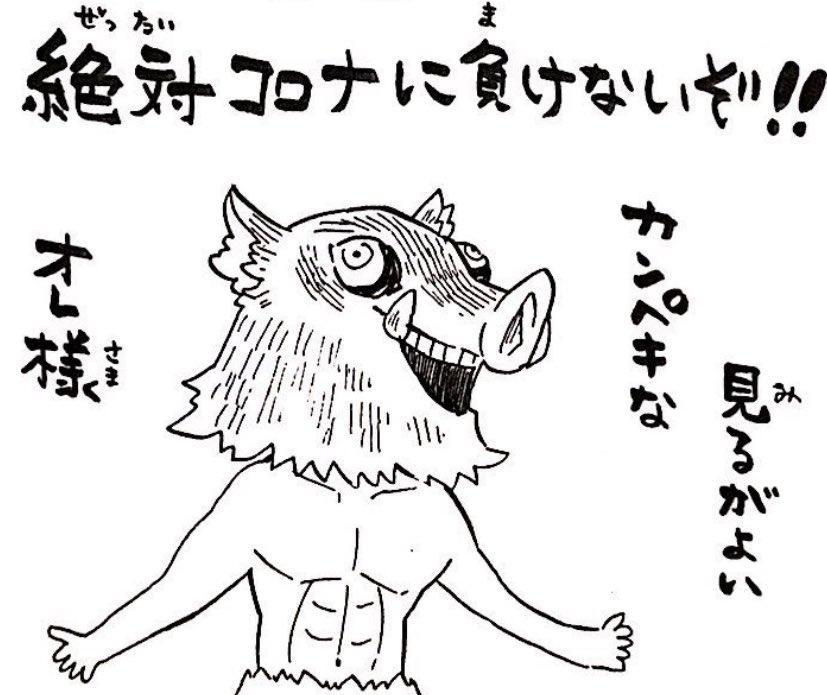 絶対コロナに負けないぞ!!
ぜったい
ま
見るがよい
み
カンペキな
オレ様
さま